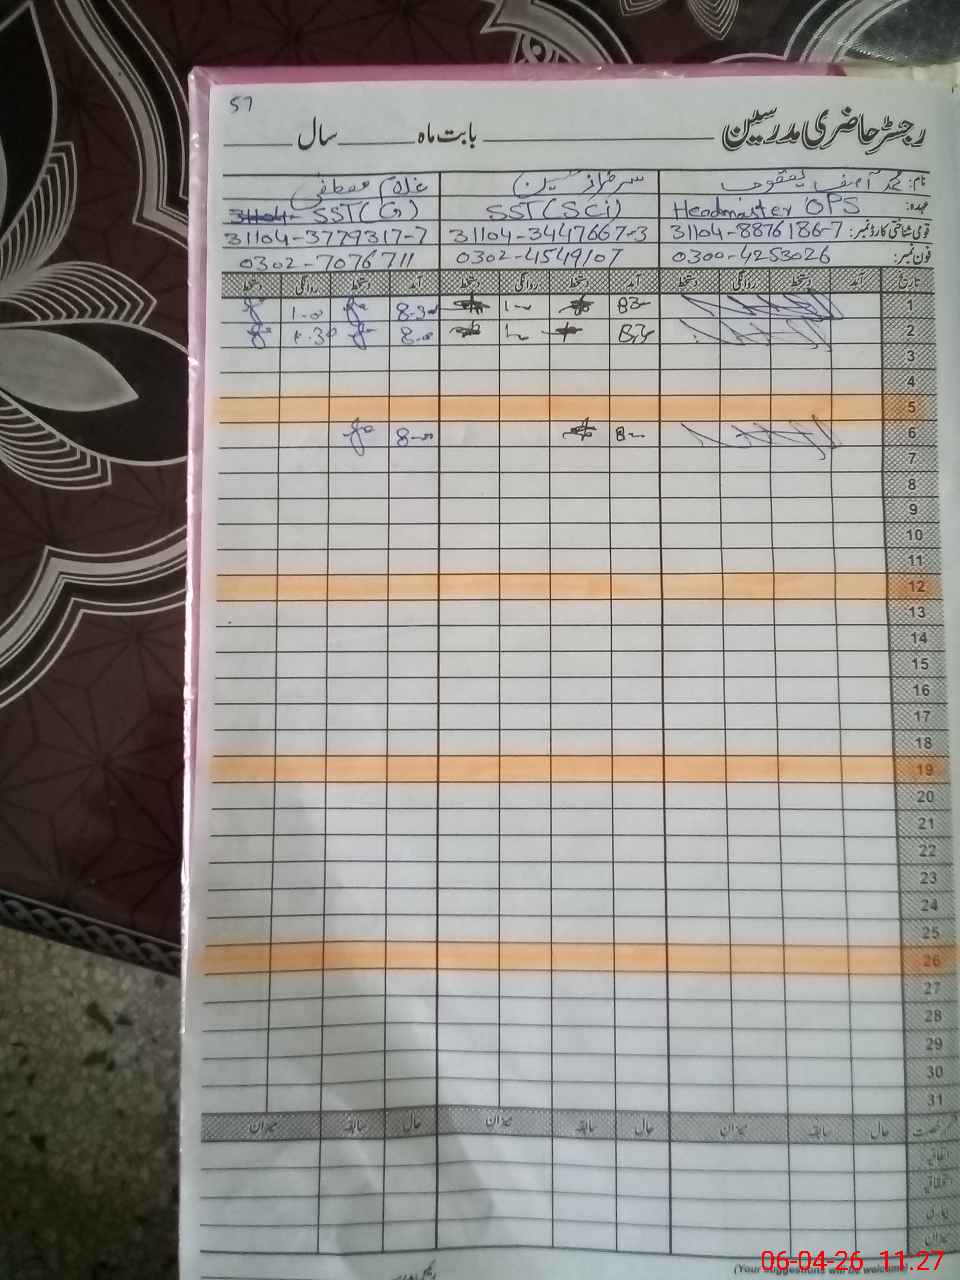 57
رجسٹر حاضری مدرسین ــــــ بابت ماہ ــــــ سال ــــــ
نام: محمد آصف یعقوب سرفراز حسین غلام مصطفی
عہدہ: Headmaster OPS SST(Sci) SST(G)
قومی شناختی کارڈ نمبر: 31104-8876186-7 31104-3447667-3 31104-3779317-7
فون نمبر: 0300-4253026 0302-4549107 0302-7076711
تاریخ آمد دستخط روانگی دستخط آمد دستخط روانگی دستخط آمد دستخط روانگی دستخط
1 8-30 1-0
2 8-0
3
4
5
6 8-00
7
8
9
10
11
12
13
14
15
16
17
18
19
20
21
22
23
24
25
26
27
28
29
30
31
حال سابقہ میزان حال سابقہ میزان حال سابقہ میزان
اتفاقیہ
میزان
(Your suggestions will be welcome)
06-04-26 11:27